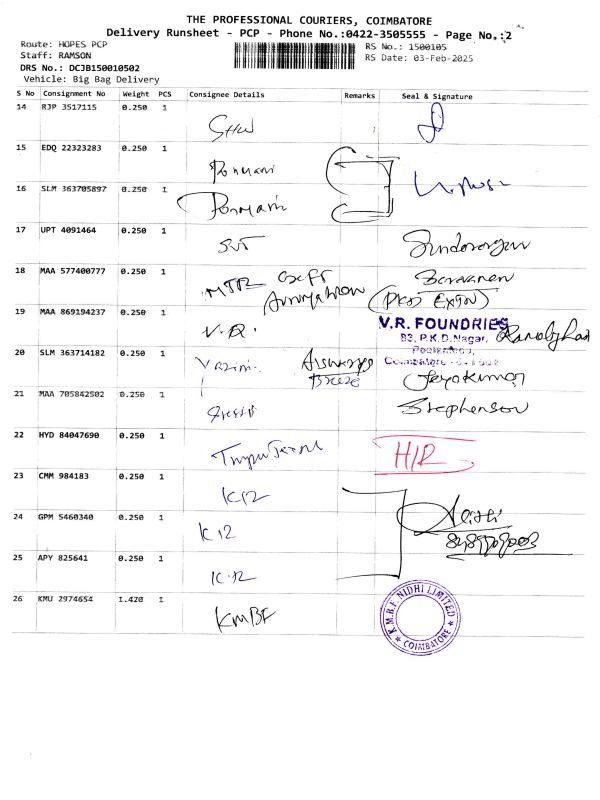 THE PROFESSIONAL COURIERS, COIMBATORE
Delivery Runsheet - PCP - Phone No.:0422-3505555 - Page No.:2
Route: HOPES PCP
Staff: RAMSON
DRS No.: DCJB150010502
Vehicle: Big Bag Delivery
RS No.: 1500105
RS Date: 03-Feb-2025
S No Consignment No Weight PCS Consignee Details Remarks Seal & Signature
14 RJP 3517115 0.250 1
15 EDQ 22323283 0.250 1 Ponmani
16 SLM 363705897 0.250 1 Ponmani
17 UPT 4091464 0.250 1
18 MAA 577400777 0.250 1 Saravanan
19 MAA 869194237 0.250 1 V.R. V.R. FOUNDRIES
83, P.K.D.Nagar,
20 SLM 363714182 0.250 1 Jeyakumar
21 MAA 705842502 0.250 1 Stephenson
22 HYD 84047690 0.250 1
23 CMM 984183 0.250 1 K12
24 GPM 5460340 0.250 1 K12
25 APY 825641 0.250 1 K12
26 KMU 2974654 1.420 1 KMBF K.M.B.F. NIDHI LIMITED
COIMBATORE